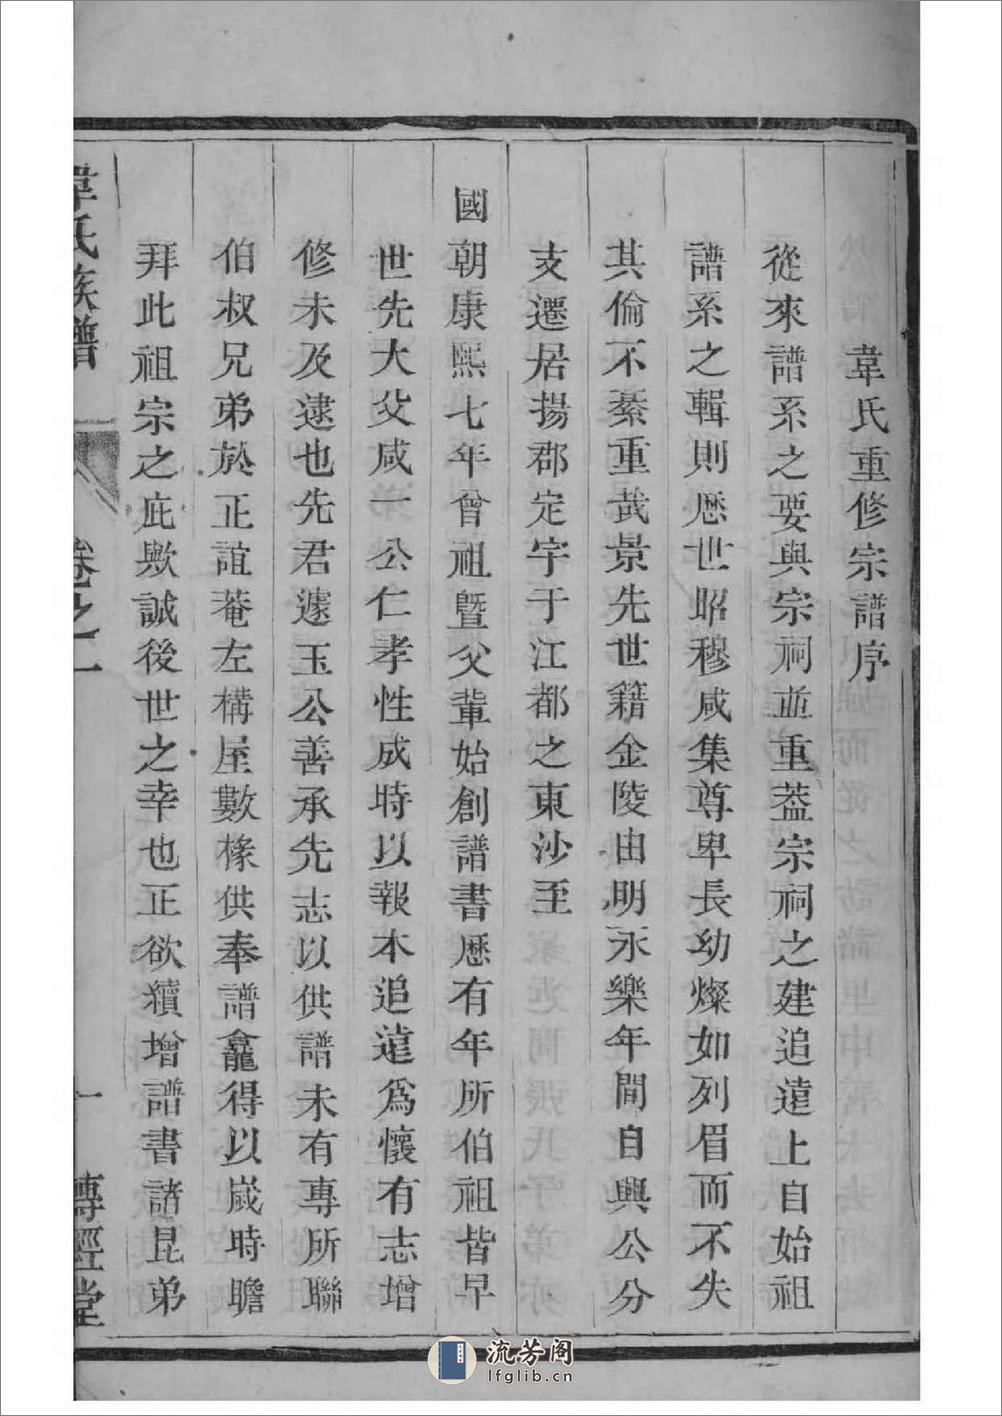 韋氏重修宗譜序
從來譜系之要與宗祠並重葢宗祠之建追遠上自始祖
譜系之輯則歷世昭穆咸集尊卑長幼燦如列眉而不失
其倫不綦重哉景先世籍金陵由明永樂年間自興公分
支遷居揚郡定宇于江都之東沙至
國朝康熙七年曾祖曁父輩始創譜書歷有年所伯祖皆早
世先大父咸一公仁孝性成時以報本追遠爲懷有志增
修未及逮也先君遽玉公善承先志以供譜未有專所聯
伯叔兄弟於正誼菴左構屋數椽供奉譜龕得以歲時瞻
拜此祖宗之庇歟誠後世之幸也正欲續增譜書諸昆弟
韋氏族譜
卷之一
一
傳經堂
流芳阁
lfglib.cn